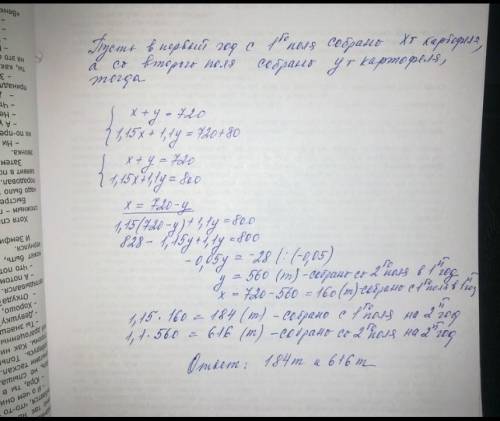 Пусть в первый год с 1го поля собрано xт картофеля,
а со второго поля собрано yт картофеля,
тогда
{ x + y = 720
1,15x + 1,1y = 720+80
{ x + y = 720
1,15x+1,1y = 800
x = 720-y
1,15(720-y)+1,1y = 800
828 - 1,15y+1,1y = 800
-0,05y = -28 (:(-0,05)
y = 560 (т) - собрано со 2го поля в 1й год
x = 720-560 = 160(т)-собрано с 1го поля в 1й год
1,15 · 160 = 184 (т) - собрано с 1го поля на 2й год
1,1 · 560 = 616 (т) - собрано со 2го поля на 2й год
Ответ: 184т и 616т